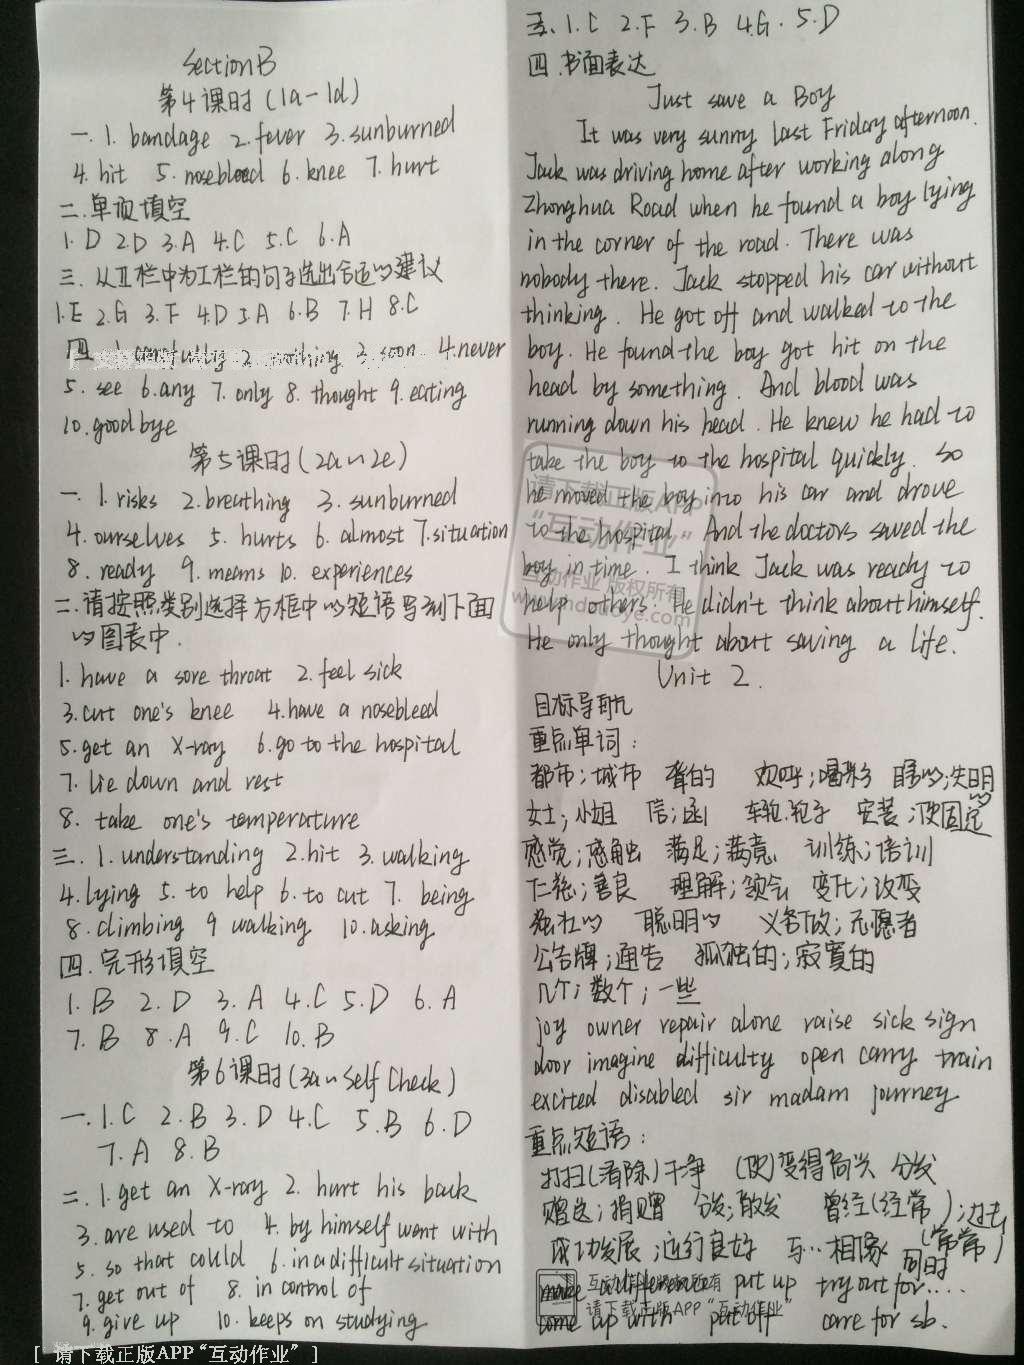 Section B
第4课时(1a-1d)
一.1. bandage 2. fever 3. sunburned
4. hit 5. nosebleed 6. knee 7. hurt
二.单项填空
1. D 2. D 3. A 4. C 5. C 6. A
三.从Ⅱ栏中为Ⅰ栏的句子选出合适的建议
1. E 2. G 3. F 4. D 5. A 6. B 7. H 8. C
四 1. carefully 2. nothing 3. soon 4. never
5. see 6. any 7. only 8. thought 9. eating
10. goodbye
第5课时(2a~2e)
一.1. risks 2. breathing 3. sunburned
4. ourselves 5. hurts 6. almost 7. situation
8. ready 9. means 10. experiences
二.请按照类别选择方框中的短语写到下面
的图表中.
1. have a sore throat 2. feel sick
3. cut one's knee 4. have a nosebleed
5. get an X-ray 6. go to the hospital
7. lie down and rest
8. take one's temperature
三.1. understanding 2. hit 3. walking
4. lying 5. to help 6. to cut 7. being
8. climbing 9 walking 10. asking
四.完形填空
1. B 2. D 3. A 4. C 5. D 6. A
7. B 8. A 9. C 10. B
第6课时(3a~Self Check)
一.1. C 2. B 3. D 4. C 5. B 6. D
7. A 8. B
二.1. get an X-ray 2. hurt his back
3. are used to 4. by himself went with
5. so that could 6. in a difficult situation
7. get out of 8. in control of
9. give up 10. keeps on studying
[ 请下载正版APP“互动作业” ]
五.1. C 2. F 3. B 4. G. 5. D
四.书面表达
Just save a Boy
It was very sunny last Friday afternoon.
Jack was driving home after working along
Zhonghua Road when he found a boy lying
in the corner of the road. There was
nobody there. Jack stopped his car without
thinking. He got off and walked to the
boy. He found the boy got hit on the
head by something. And blood was
running down his head. He knew he had to
take the boy to the hospital quickly. So
he moved the boy into his car and drove
to the hospital. And the doctors saved the
boy in time. I think Jack was ready to
help others. He didn't think about himself.
He only thought about saving a life.
请下载正版APP
“互动作业”
互动作业 版权所有
Unit 2.
目标导航
重点单词:
都市;城市 聋的 欢呼;喝彩 瞎的;失明的
女士;小姐 信;函 车轮.轮子 安装;使固定
感觉;感触 满足;满意 训练;培训
仁慈;善良 理解;领会 变化;改变
强壮的 聪明的 义务做;志愿者
公告牌;通告 孤独的;寂寞的
几个;数个;一些
joy owner repair alone raise sick sign
door imagine difficulty open carry train
excited disabled sir madam journey
重点短语:
打扫(清除)干净 (使)变得高兴 分发
赠送;捐赠 分发;散发 曾经(经常);过去(常常)
成功发展;进行良好 与…相像 同时
make a difference put up try out for....
come up with put off care for sb.
互动作业 版权所有
请下载正版APP“互动作业”